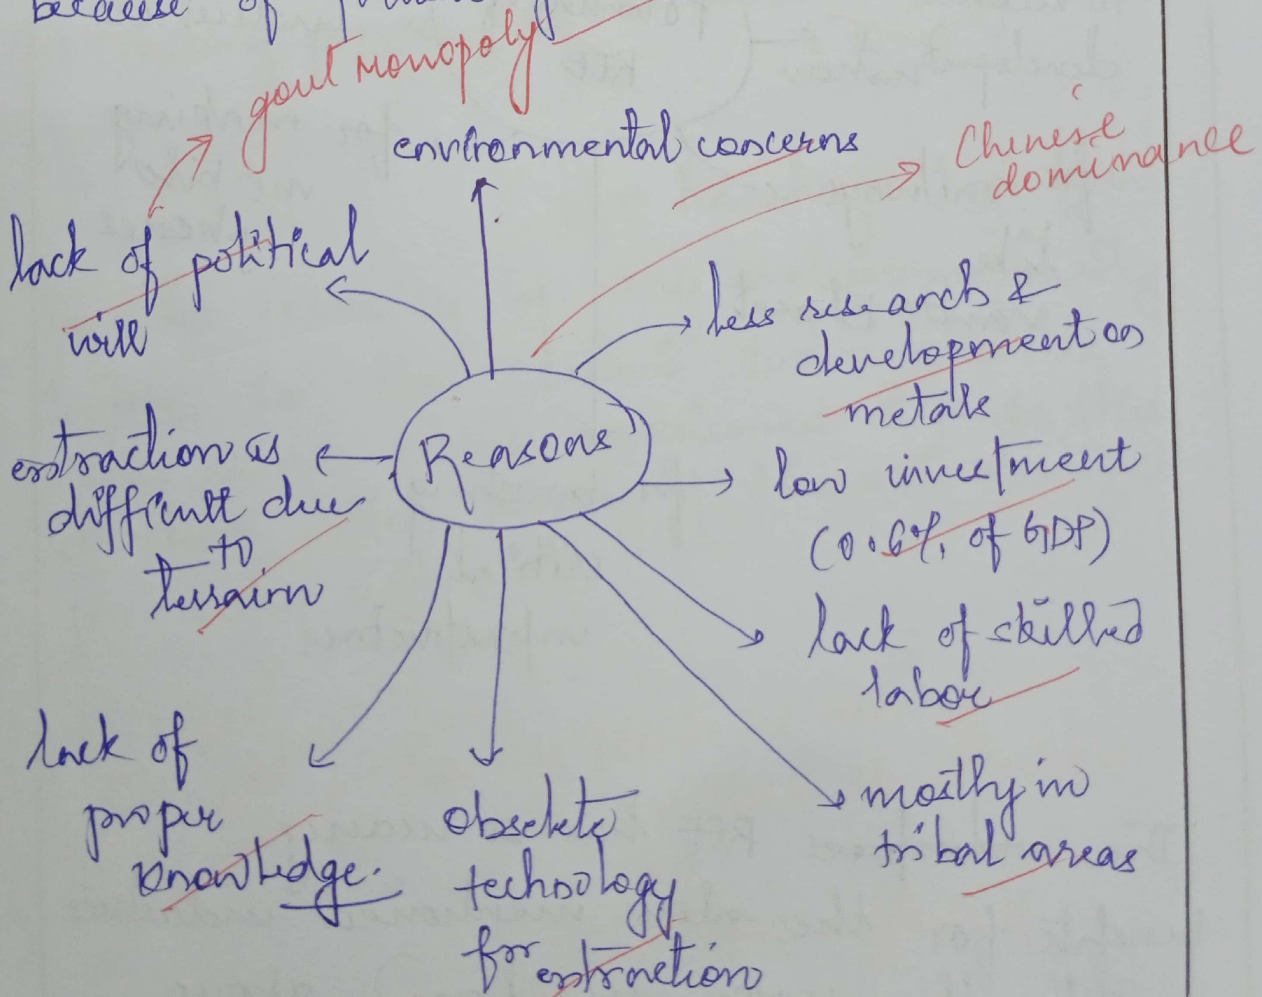 because of
govt monopoly
environmental concerns
Chinese
dominance
lack of political
will
less research &
development on
metals
Reasons
extraction is
difficult due
to
terrain
low investment
(0.6% of GDP)
lack of skilled
labor
lack of
proper
knowledge.
obselete
technology
for extraction
mostly in
tribal areas